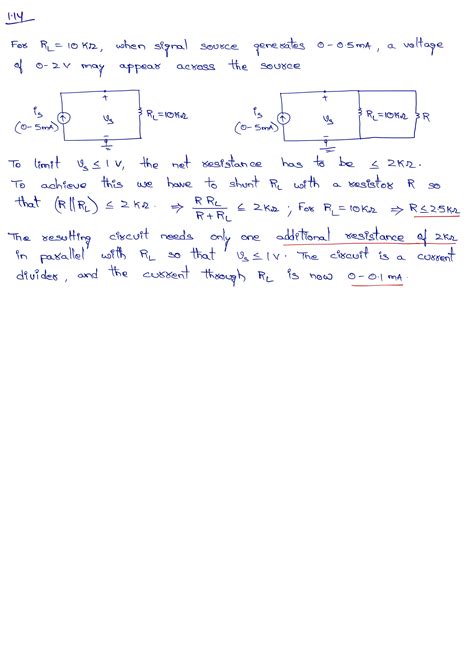 1.14
For RL = 10 KΩ, when signal source generates 0-0.5mA, a voltage
of 0-2V may appear across the source
is
(0-5mA)
+
υs
-
RL=10KΩ
is
(0-5mA)
+
υs
-
RL=10KΩ
R
To limit υs ≤ 1 V, the net resistance has to be ≤ 2KΩ.
To achieve this we have to shunt RL with a resistor R so
that (R || RL) ≤ 2 KΩ. ⇒ R RL / R + RL ≤ 2 KΩ ; For RL = 10KΩ ⇒ R ≤ 2.5KΩ
The resulting circuit needs only one additional resistance of 2KΩ
in parallel with RL so that υs ≤ 1V. The circuit is a current
divider, and the current through RL is now 0-0.1 mA.